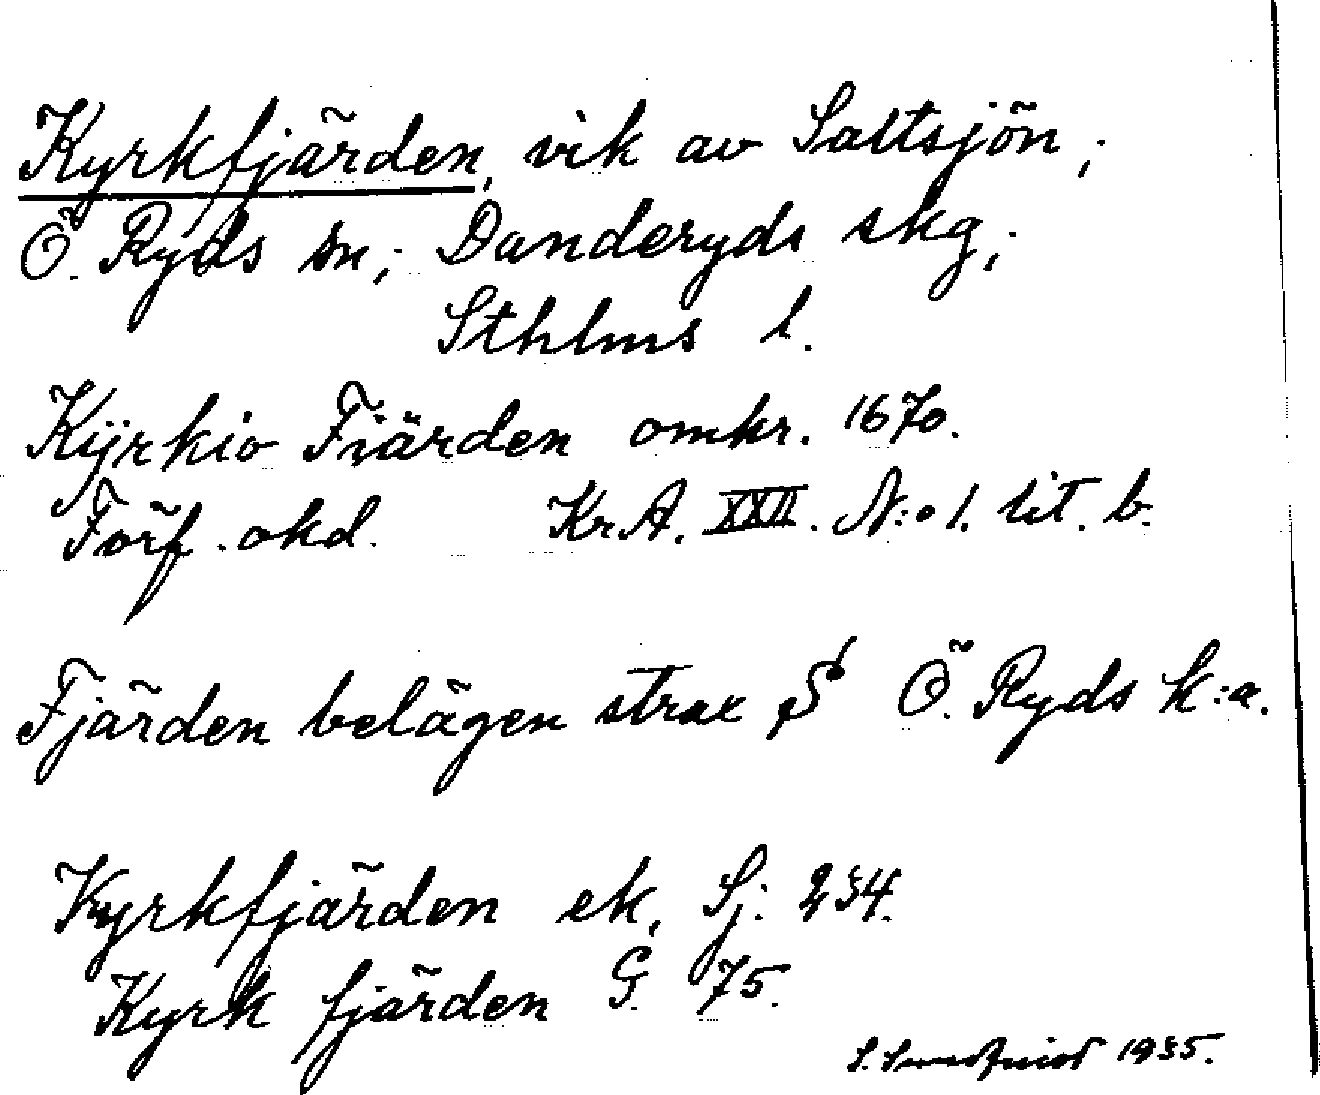 Kyrkfjärden, vik av Saltsjön;
Ö. Ryds sn; Danderyds skg;
Sthlms l.
Kÿrkio Fiärden omkr. 1670.
Förf. okd. Kr.A. XXII. N:o 1. lit. b.
Fjärden belägen strax S Ö. Ryds k:a.
Kyrkfjärden ek, Sj. 234.
Kyrk fjärden G. 75.
S. Sundquist 1935.